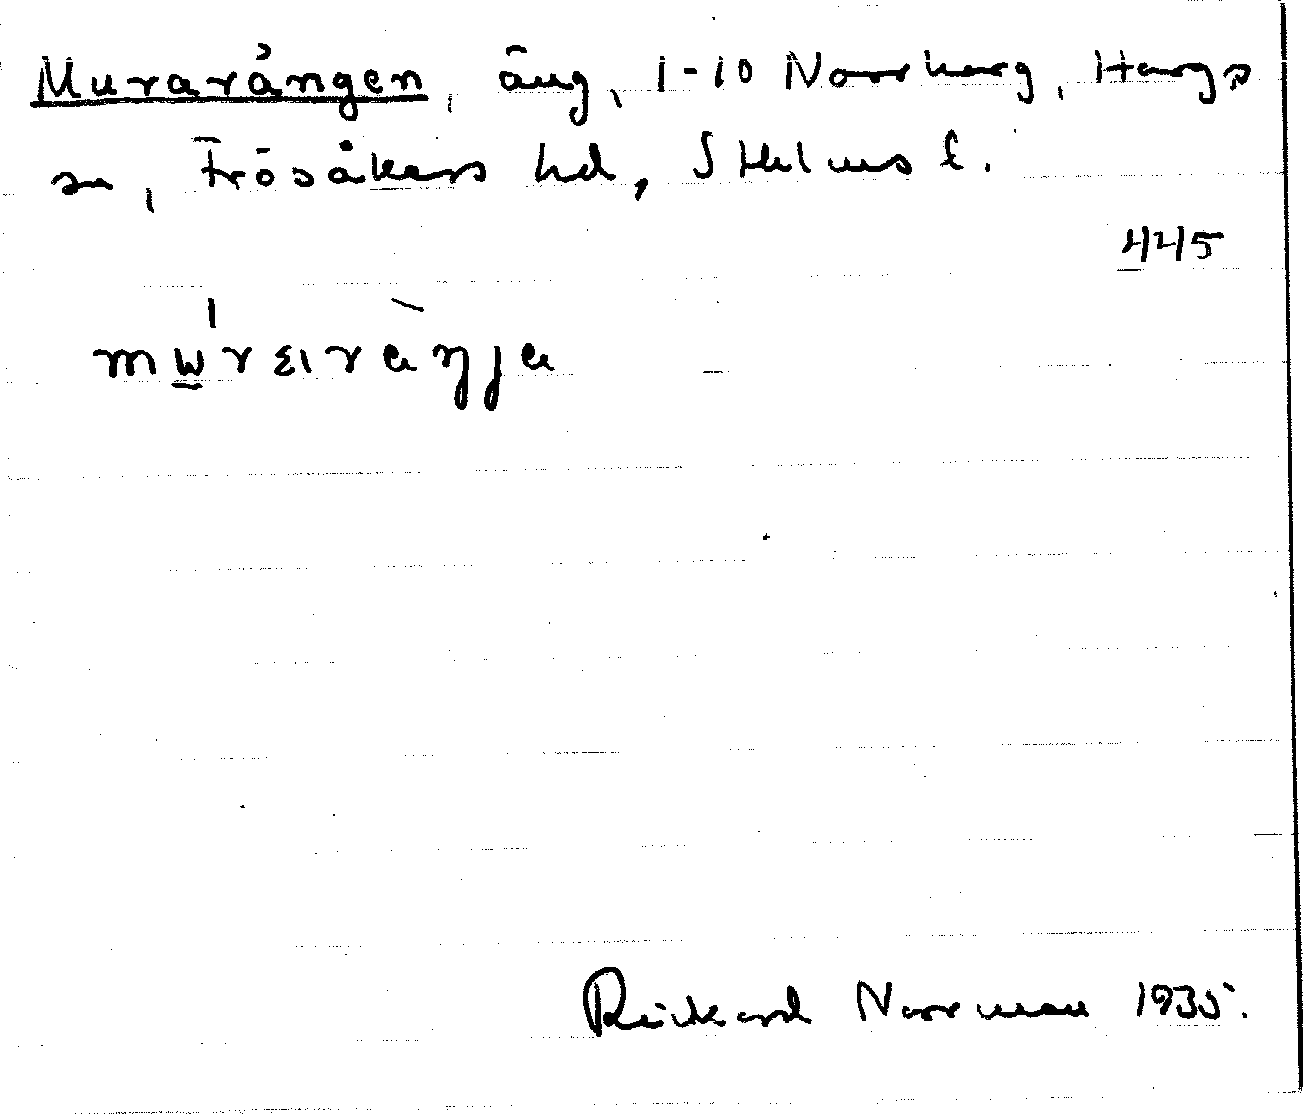 Murarängen, äng, 1-10 Norrharg, Hargs
sn, Frösåkers hd, Sthlms l.
445
Rickard Norrman 1935.